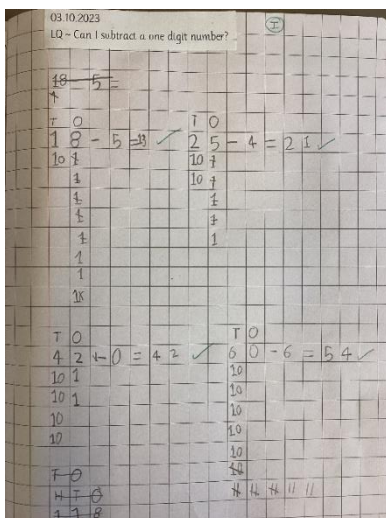 03.10.2023
LQ – Can I subtract a one digit number?
I
18 - 5 =
1
T O
18 - 5 = 13 ✓
10 1
1
1
1
1
1
1
T O
25 - 4 = 21 ✓
10 1
10 1
1
1
1
T O
42 - 0 = 42 ✓
10 1
10 1
10
10
T O
60 - 6 = 54 ✓
10
10
10
10
10
10
T O
H T O
1 1 8